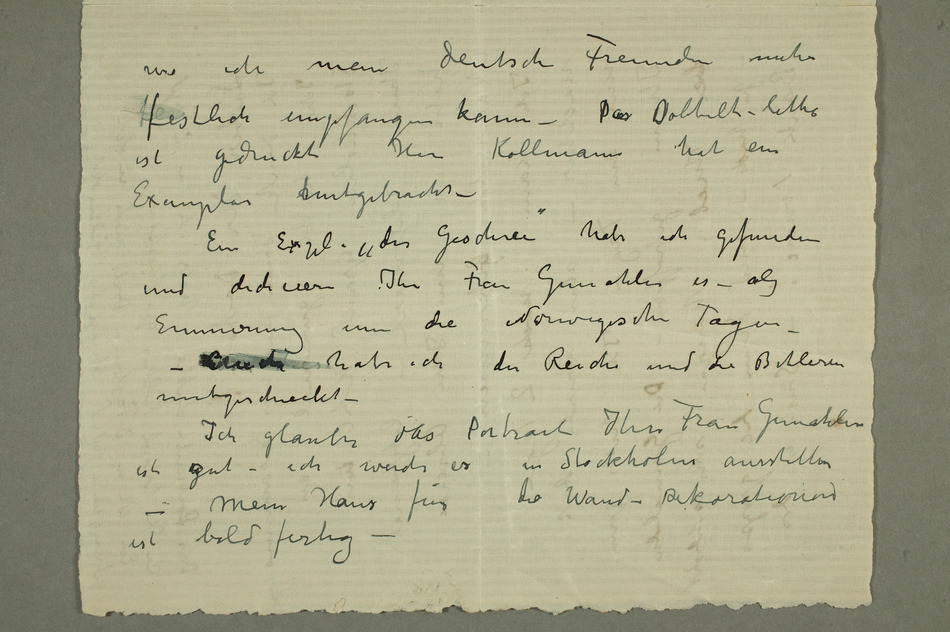 wo ich mein deutsche Freunden mehr
festlich empfangen kann – Das Dobbelt-litho
ist gedruckt Herr Kollmann hat ein
Exemplar mitgebracht –
Ein Expl. „des Geschrei" habe ich gefunden
und dediciere Ihr Frau Gemahlin es – als
Erinnerung um die Norwegische Tagen –
– habe ich der Reiche und die Bettlerin
mitgeschickt –
Ich glaube das Portrait Ihrer Frau Gemahlin
ist gut – ich werde es in Stockholm ausstellen
– Mein Haus für die Wand-dekorationen
ist bald fertig –